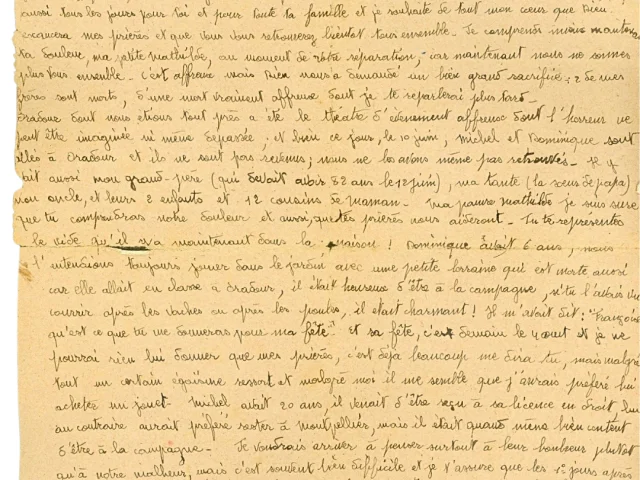 aussi tous les jours pour toi et pour toute ta famille et je souhaite de tout mon cœur que Dieu
exaucera mes prières et que vous vous retrouverez bientôt tous ensemble - Je comprends mieux maintenant
ta douleur, ma petite Mathilde, au moment de votre séparation, car maintenant nous ne sommes
plus tous ensemble - c'est affreux mais Dieu nous a demandé un bien grand sacrifice : 2 de mes
frères sont morts, d'une mort vraiment affreuse dont je te reparlerai plus tard -
Oradour dont nous étions tout près a été le théâtre d'évènement affreux dont l'horreur ne
peut être imaginée ni même dépassée, et bien ce jour, le 10 juin, Michel et Dominique sont
allés à Oradour et ils ne sont pas revenus ; nous ne les avons même pas retrouvés - Il y
avait aussi mon grand-père (qui devait avoir 82 ans le 12 juin), ma tante (la sœur de papa),
mon oncle, et leurs 2 enfants et 12 cousins de maman - Ma pauvre Mathilde je suis sûre
que tu comprendras notre douleur et aussi, que tes prières nous aideront - Tu te représentes
le vide qu'il y a maintenant dans la maison ! Dominique avait 6 ans, nous
l'entendions toujours jouer dans le jardin avec une petite lorraine qui est morte aussi
car elle allait en classe à Oradour, il était heureux d'être à la campagne, si tu l'avais vu
courir après les vaches ou après les poules, il était charmant ! Il m'avait dit : "Françoise
qu'est ce que tu me donneras pour ma fête" Et sa fête, c'est demain le 4 août et je ne
pourrai rien lui donner que mes prières, c'est déjà beaucoup me diras tu, mais malgré
tout un certain égoïsme ressort et malgré moi il me semble que j'aurais préféré lui
acheter un jouet - Michel avait 20 ans, il venait d'être reçu à sa licence en droit, lui
au contraire aurait préféré rester à Montpellier, mais il était quand même bien content
d'être à la campagne - Je voudrais arriver à penser surtout à leur bonheur plutôt
qu'à notre malheur, mais c'est souvent bien difficile et je t'assure que les 1º jours après